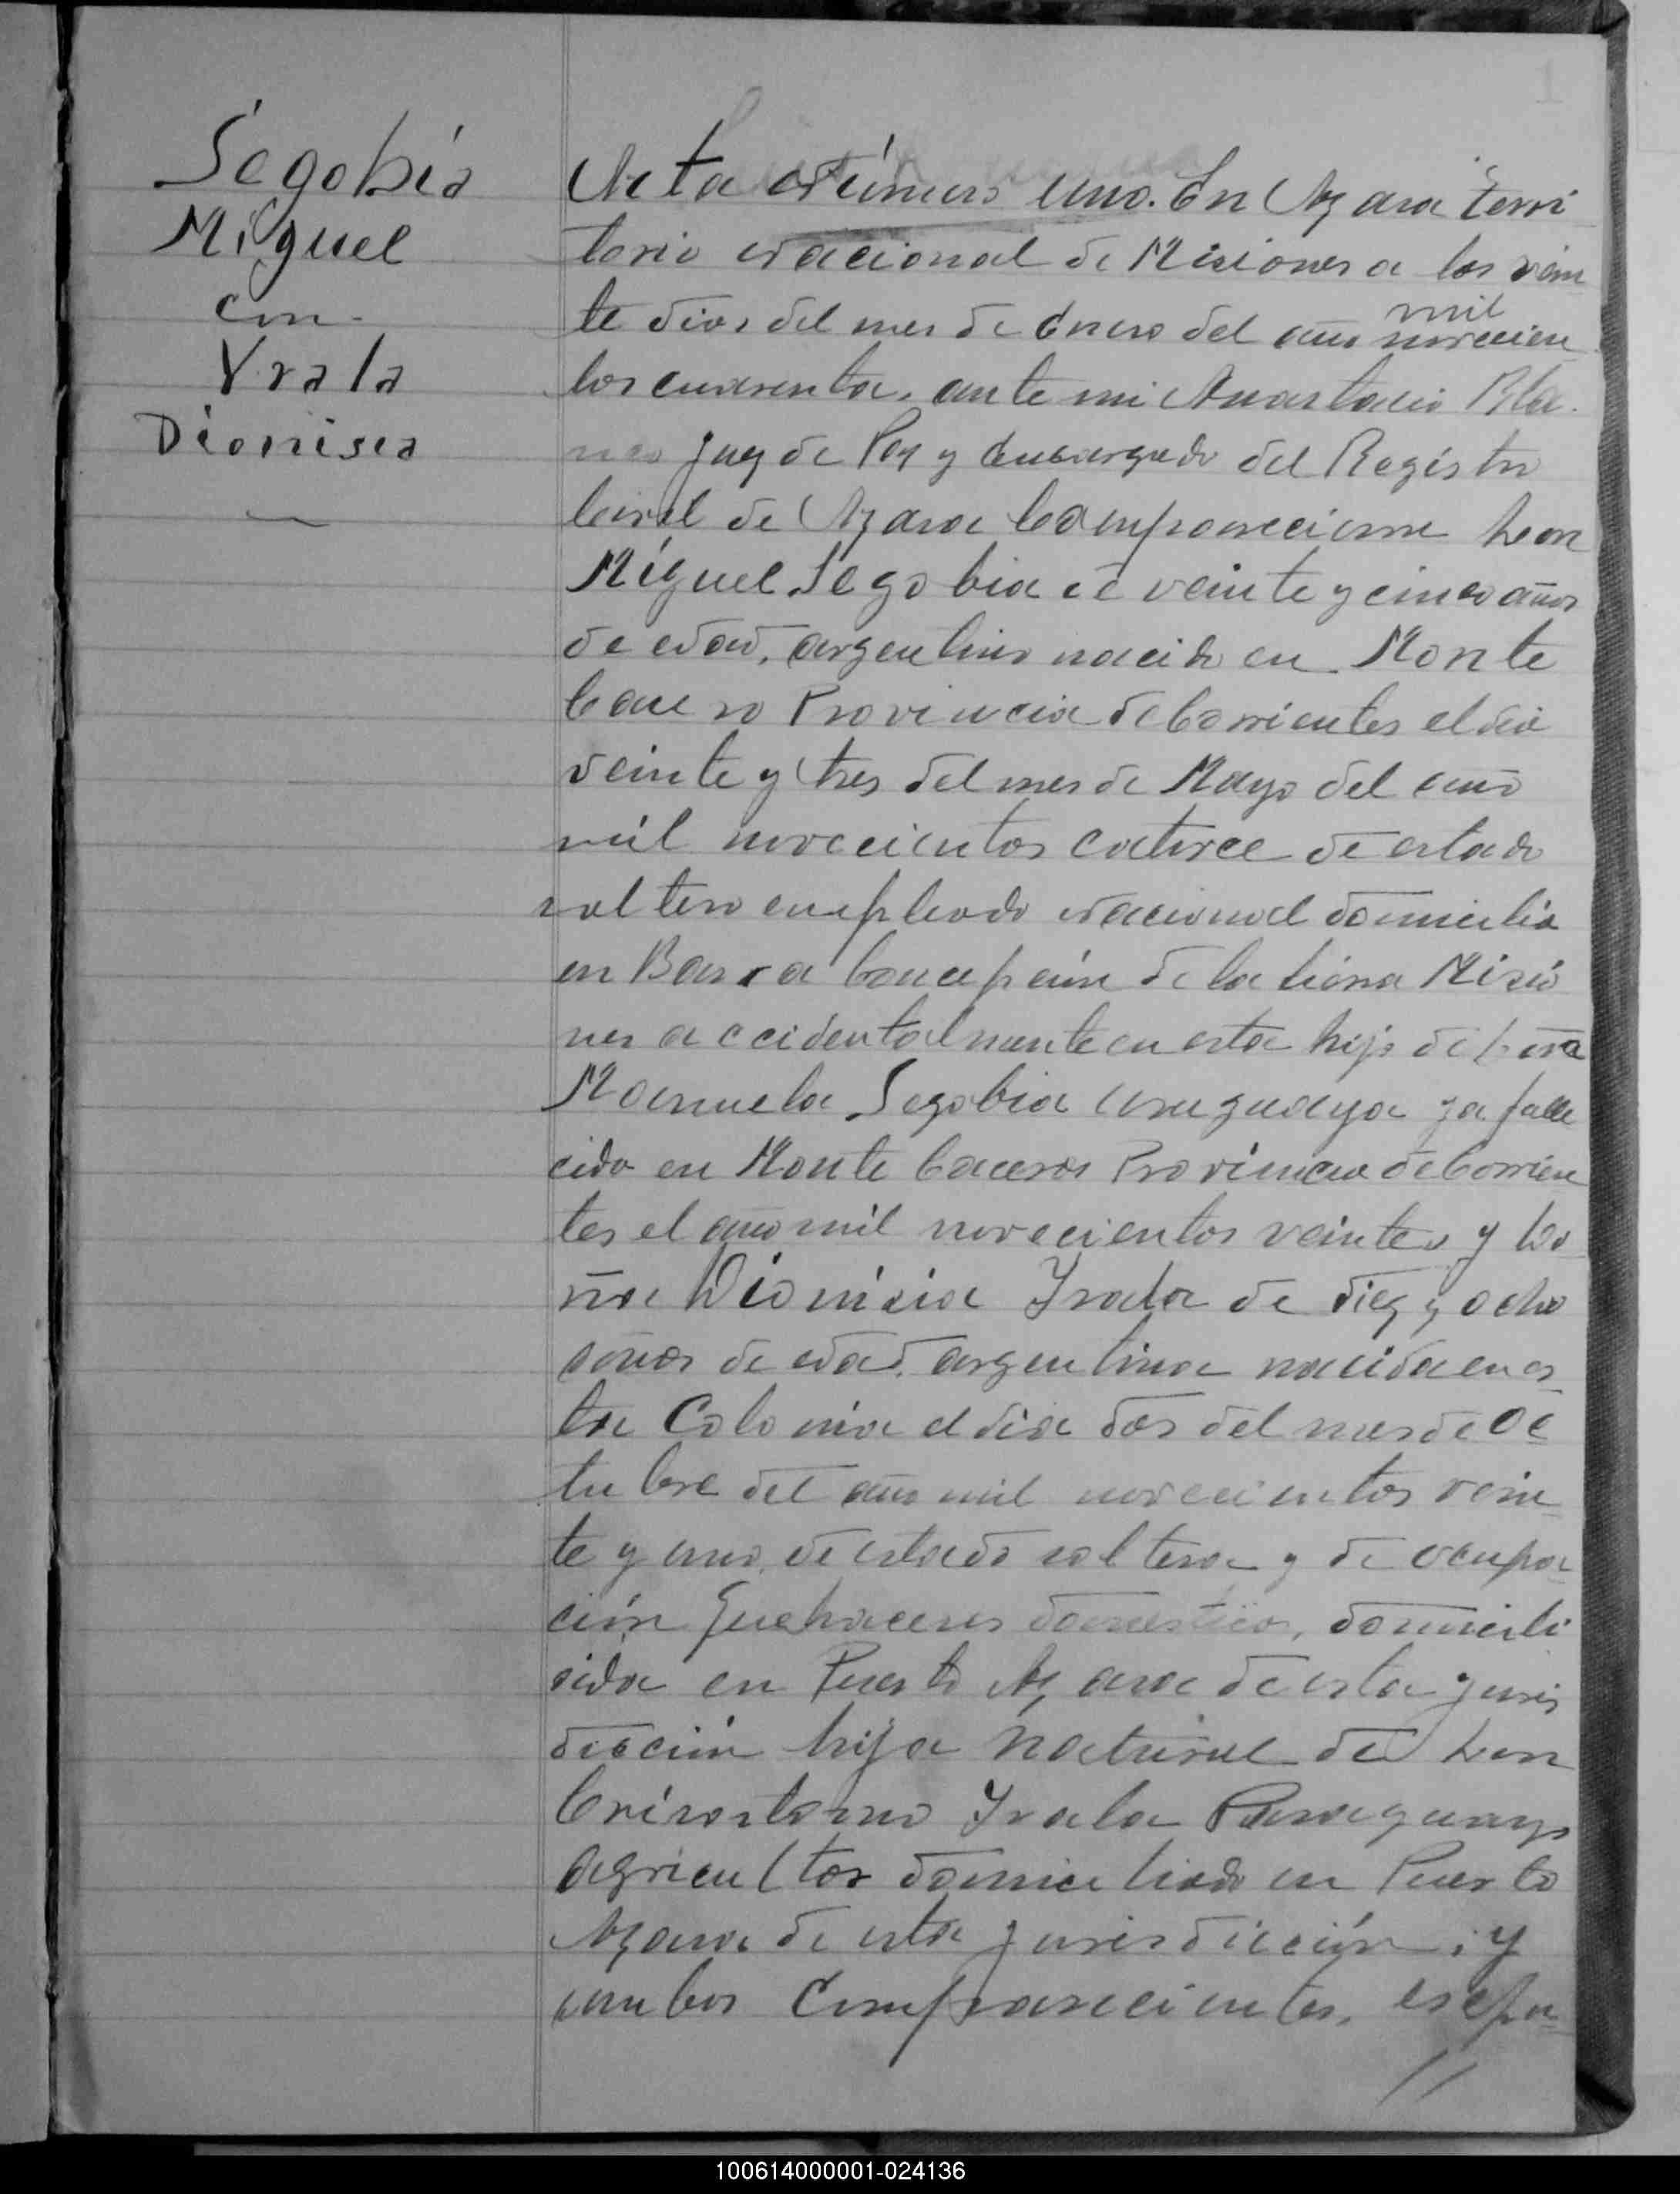 Segobia
Miguel
con
Yrala
Dionisia
1
Acta Número uno. En Azara terri
torio Nacional de Misiones a los vein
te dias del mes de Enero del año mil novecien
tos cuarenta, ante mi Anastacio Bla
nco Juez de Paz y Encargado del Registro
Civil de Azara Comparecieron Don
Miguel Segobia de veinte y cinco años
de edad, argentino nacido en Monte
Cacero Provincia de Corrientes el dia
veinte y tres del mes de Mayo del año
mil novecientos catorce de estado
soltero empleado Nacional domicilia
en Barra Concepción de la Sierra Misio
nes accidentalmente en esta hijo de Doña
Manuela Segobia uruguaya ya falle
cida en Monte Caceros Provincia de Corrien
tes el año mil novecientos veinte y Do
ña Dionisia Yrala de diez y ocho
años de edad, argentina nacida en es
ta Colonia el dia dos del mes de Oc
tubre del año mil novecientos vein
te y uno, de estado soltera y de ocupa
ción Quehaceres domesticos, domicili
ada en Puerto Azara de esta juris
dicción hija natural de Don
Crisostomo Yrala Paraguayo
agricultor domiciliado en Puerto
Azara de esta jurisdicción, y
ambos comparecientes, expu
//
100614000001-024136